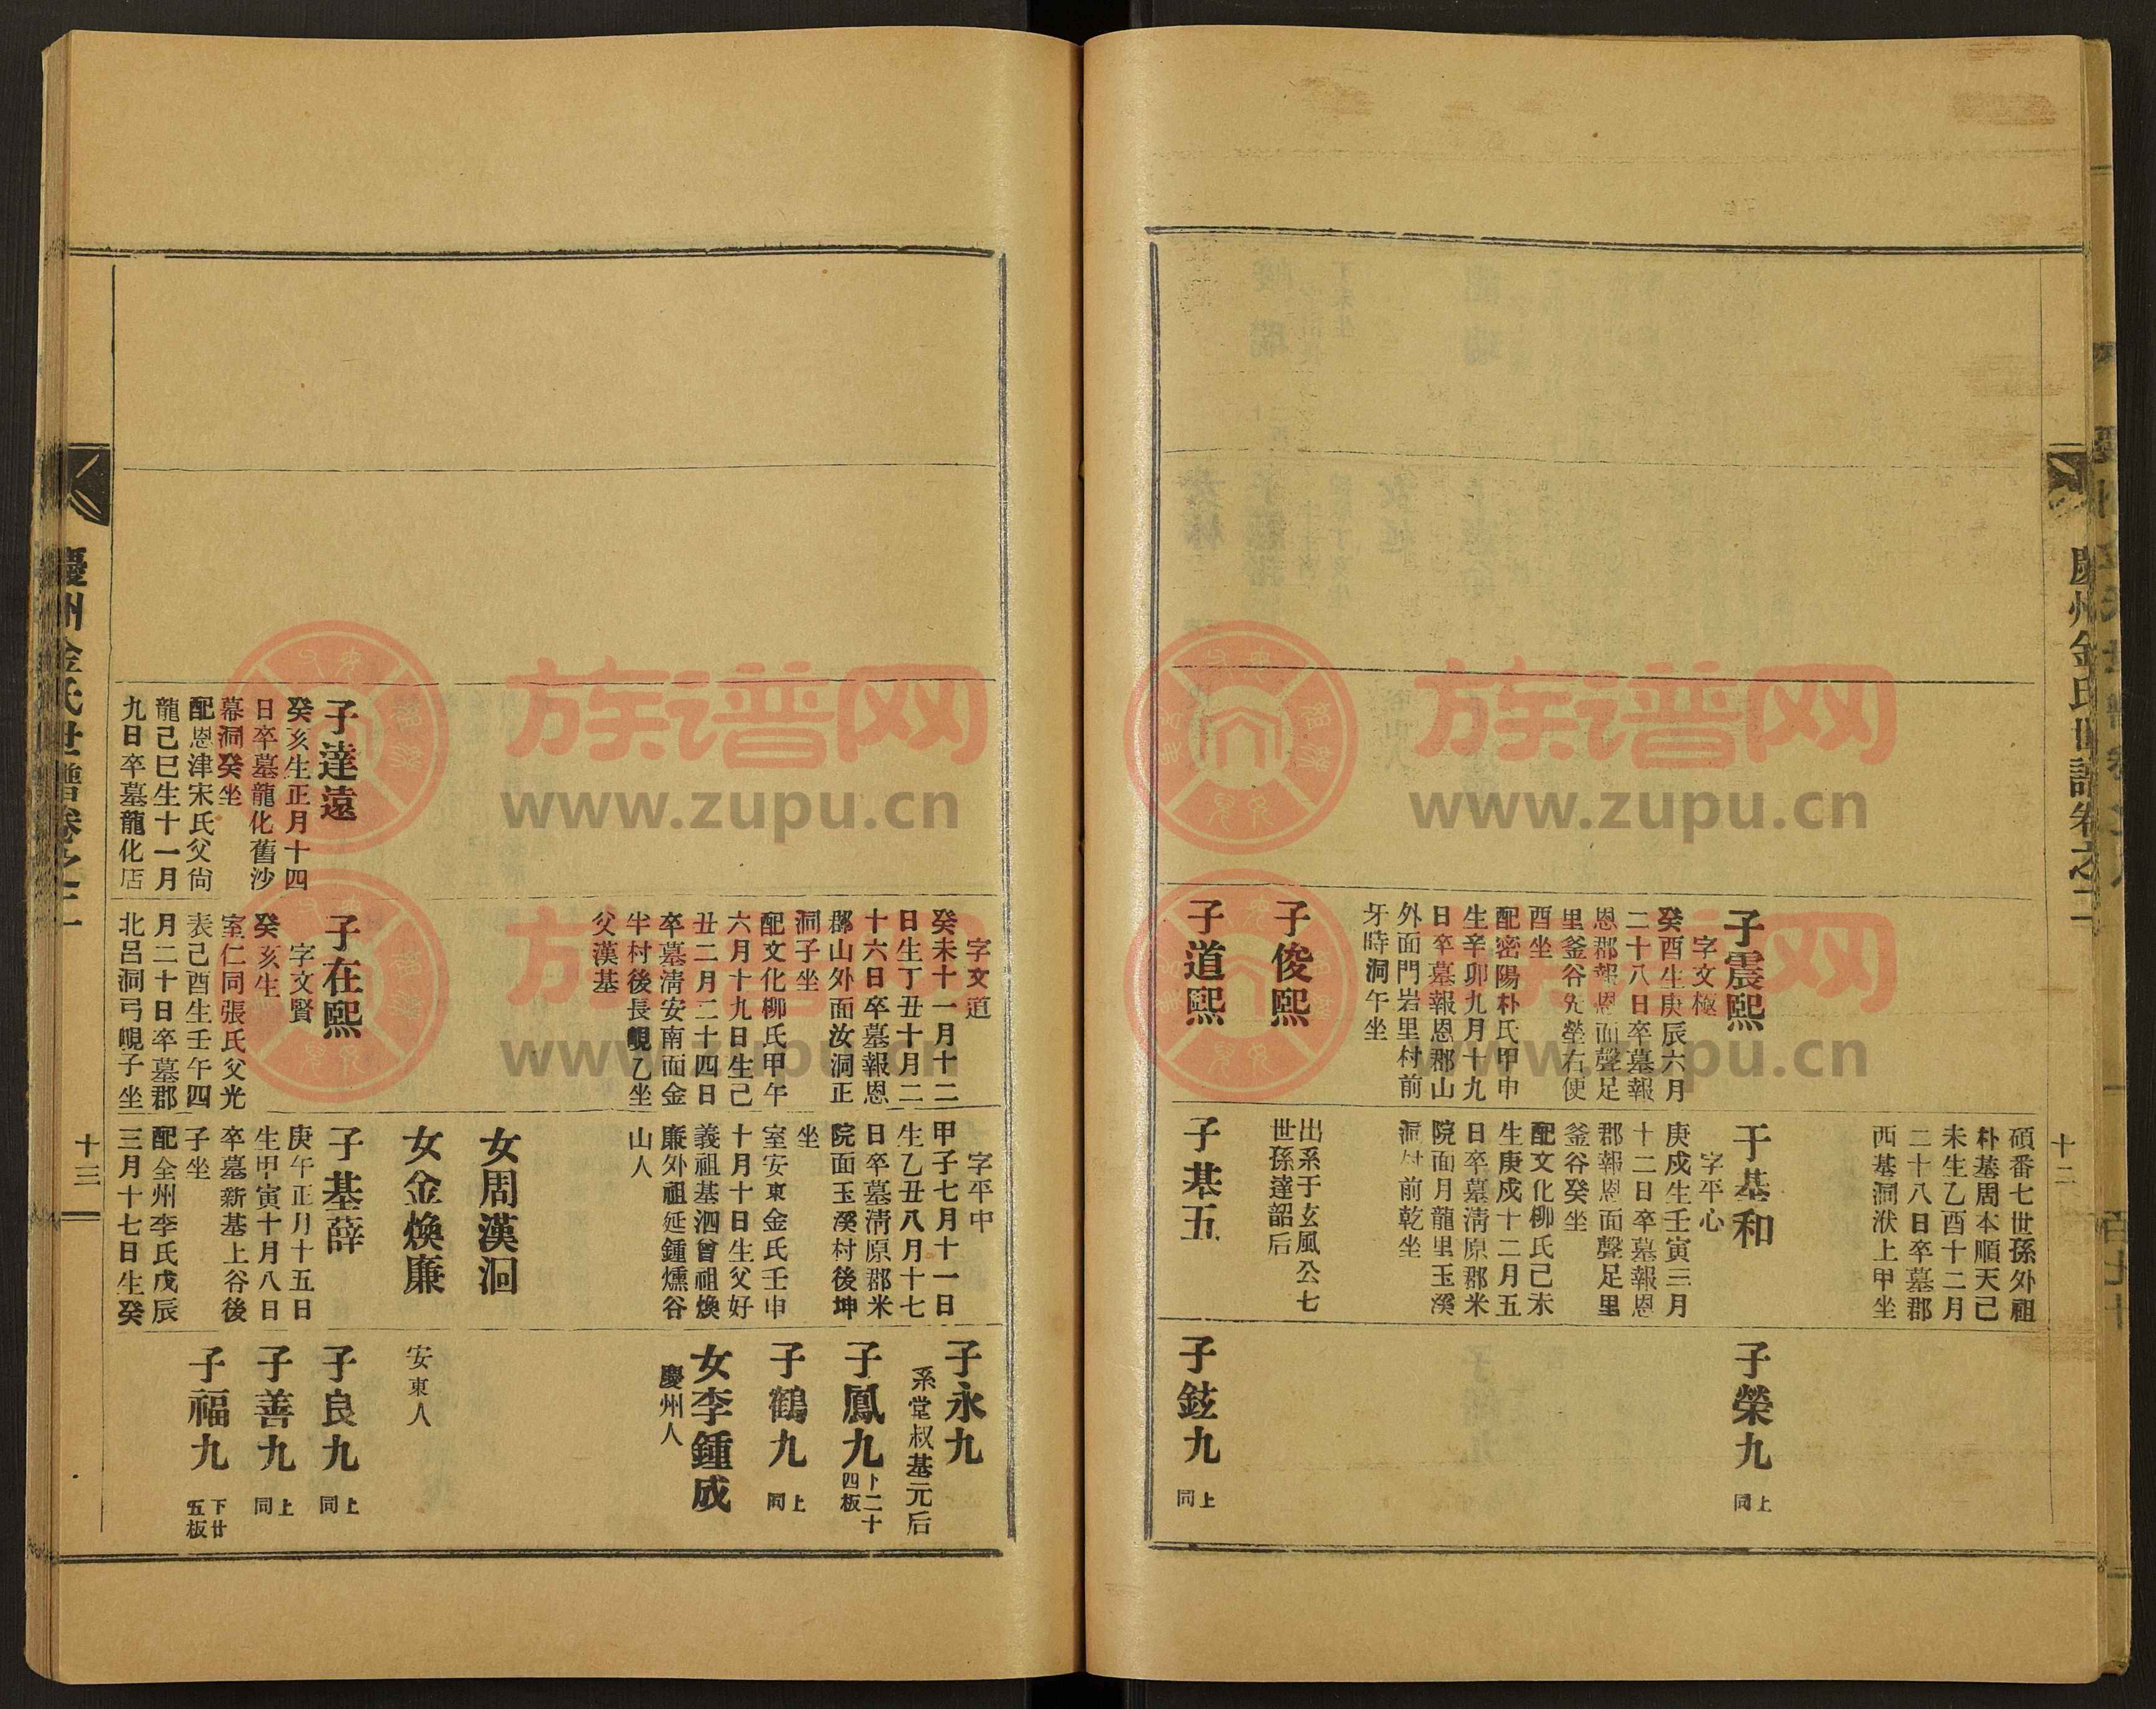 慶州金氏世譜卷之二
十二
子震熙
字文極
癸酉生庚辰六月
二十八日卒墓報
恩郡報恩面聲足
里釜谷先塋右便
酉坐
配密陽朴氏甲申
生辛卯九月十九
日卒墓報恩郡山
外面門岩里村前
牙時洞午坐
子俊熙
子道熙
碩番七世孫外祖
朴基周本順天己
未生乙酉十二月
二十八日卒墓郡
西基洞洑上甲坐
子基和
字平心
庚戍生壬寅三月
十二日卒墓報恩
郡報恩面聲足里
釜谷癸坐
配文化柳氏己未
生庚戍十二月五
日卒墓淸原郡米
院面月龍里玉溪
洞村前乾坐
出系于玄風公七
世孫達韶后
子基五
子榮九
上同
子鉉九
上同
字文道
癸未十一月十二
日生丁丑十月二
十六日卒墓報恩
郡山外面汝洞正
洞子坐
配文化柳氏甲午
六月十九日生己
丑二月二十四日
卒墓淸安南面金
半村後長峴乙坐
父漢基
字平中
甲子七月十一日
生乙丑八月十七
日卒墓淸原郡米
院面玉溪村後坤
坐
室安東金氏壬申
十月十日生父好
義祖基泗曾祖煥
廉外祖延鍾燻谷
山人
女周漢洄
女金煥廉
子永九
系堂叔基元后
子鳳九
卜二十四板
子鶴九
上同
女李鍾成
慶州人
安東人
子達遠
癸亥生正月十四
日卒墓龍化舊沙
幕洞癸坐
配恩津宋氏父尙
龍己巳生十一月
九日卒墓龍化店
子在熙
字文賢
癸亥生
室仁同張氏父光
表己酉生壬午四
月二十日卒墓郡
北呂洞弓峴子坐
子基薛
庚午正月十五日
生甲寅十月八日
卒墓新基上谷後
子坐
配全州李氏戊辰
三月十七日生癸
子良九
上同
子善九
上同
子福九
下廿五板
慶州金氏世譜卷之二
十三
族谱网
www.zupu.cn
族谱网
www.zupu.cn
族谱网
www.zupu.cn
族谱网
www.zupu.cn